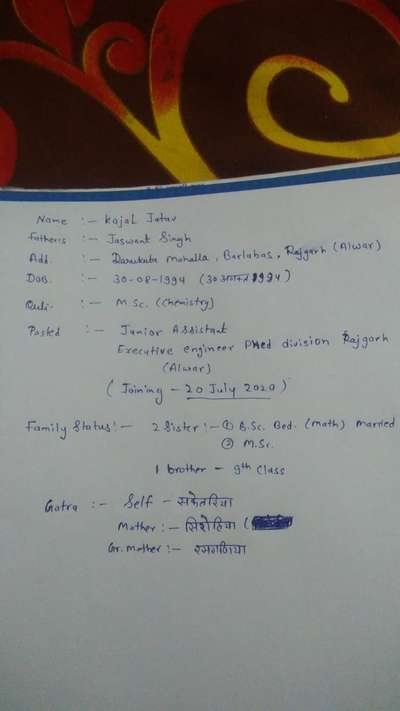 Name :- Kajal Jatav
Fathers :- Jaswant Singh
Add. :- Darukuta Mohalla, Barlabas, Rajgarh (Alwar)
DOB. :- 30-08-1994 (30 अगस्त 1994)
Quli- :- M Sc. (Chemistry)
Posted :- Junior Assistant
Executive engineer PHed division Rajgarh
(Alwar)
( Joining - 20 July 2020 )
Family Status:- 2 Sister :- ① B.Sc. Bed. (math) married
② M.Sc.
1 brother - 9th Class
Gotra :- Self - सकेतरिया
Mother :- सिरोहिया (
Gr. mother :-